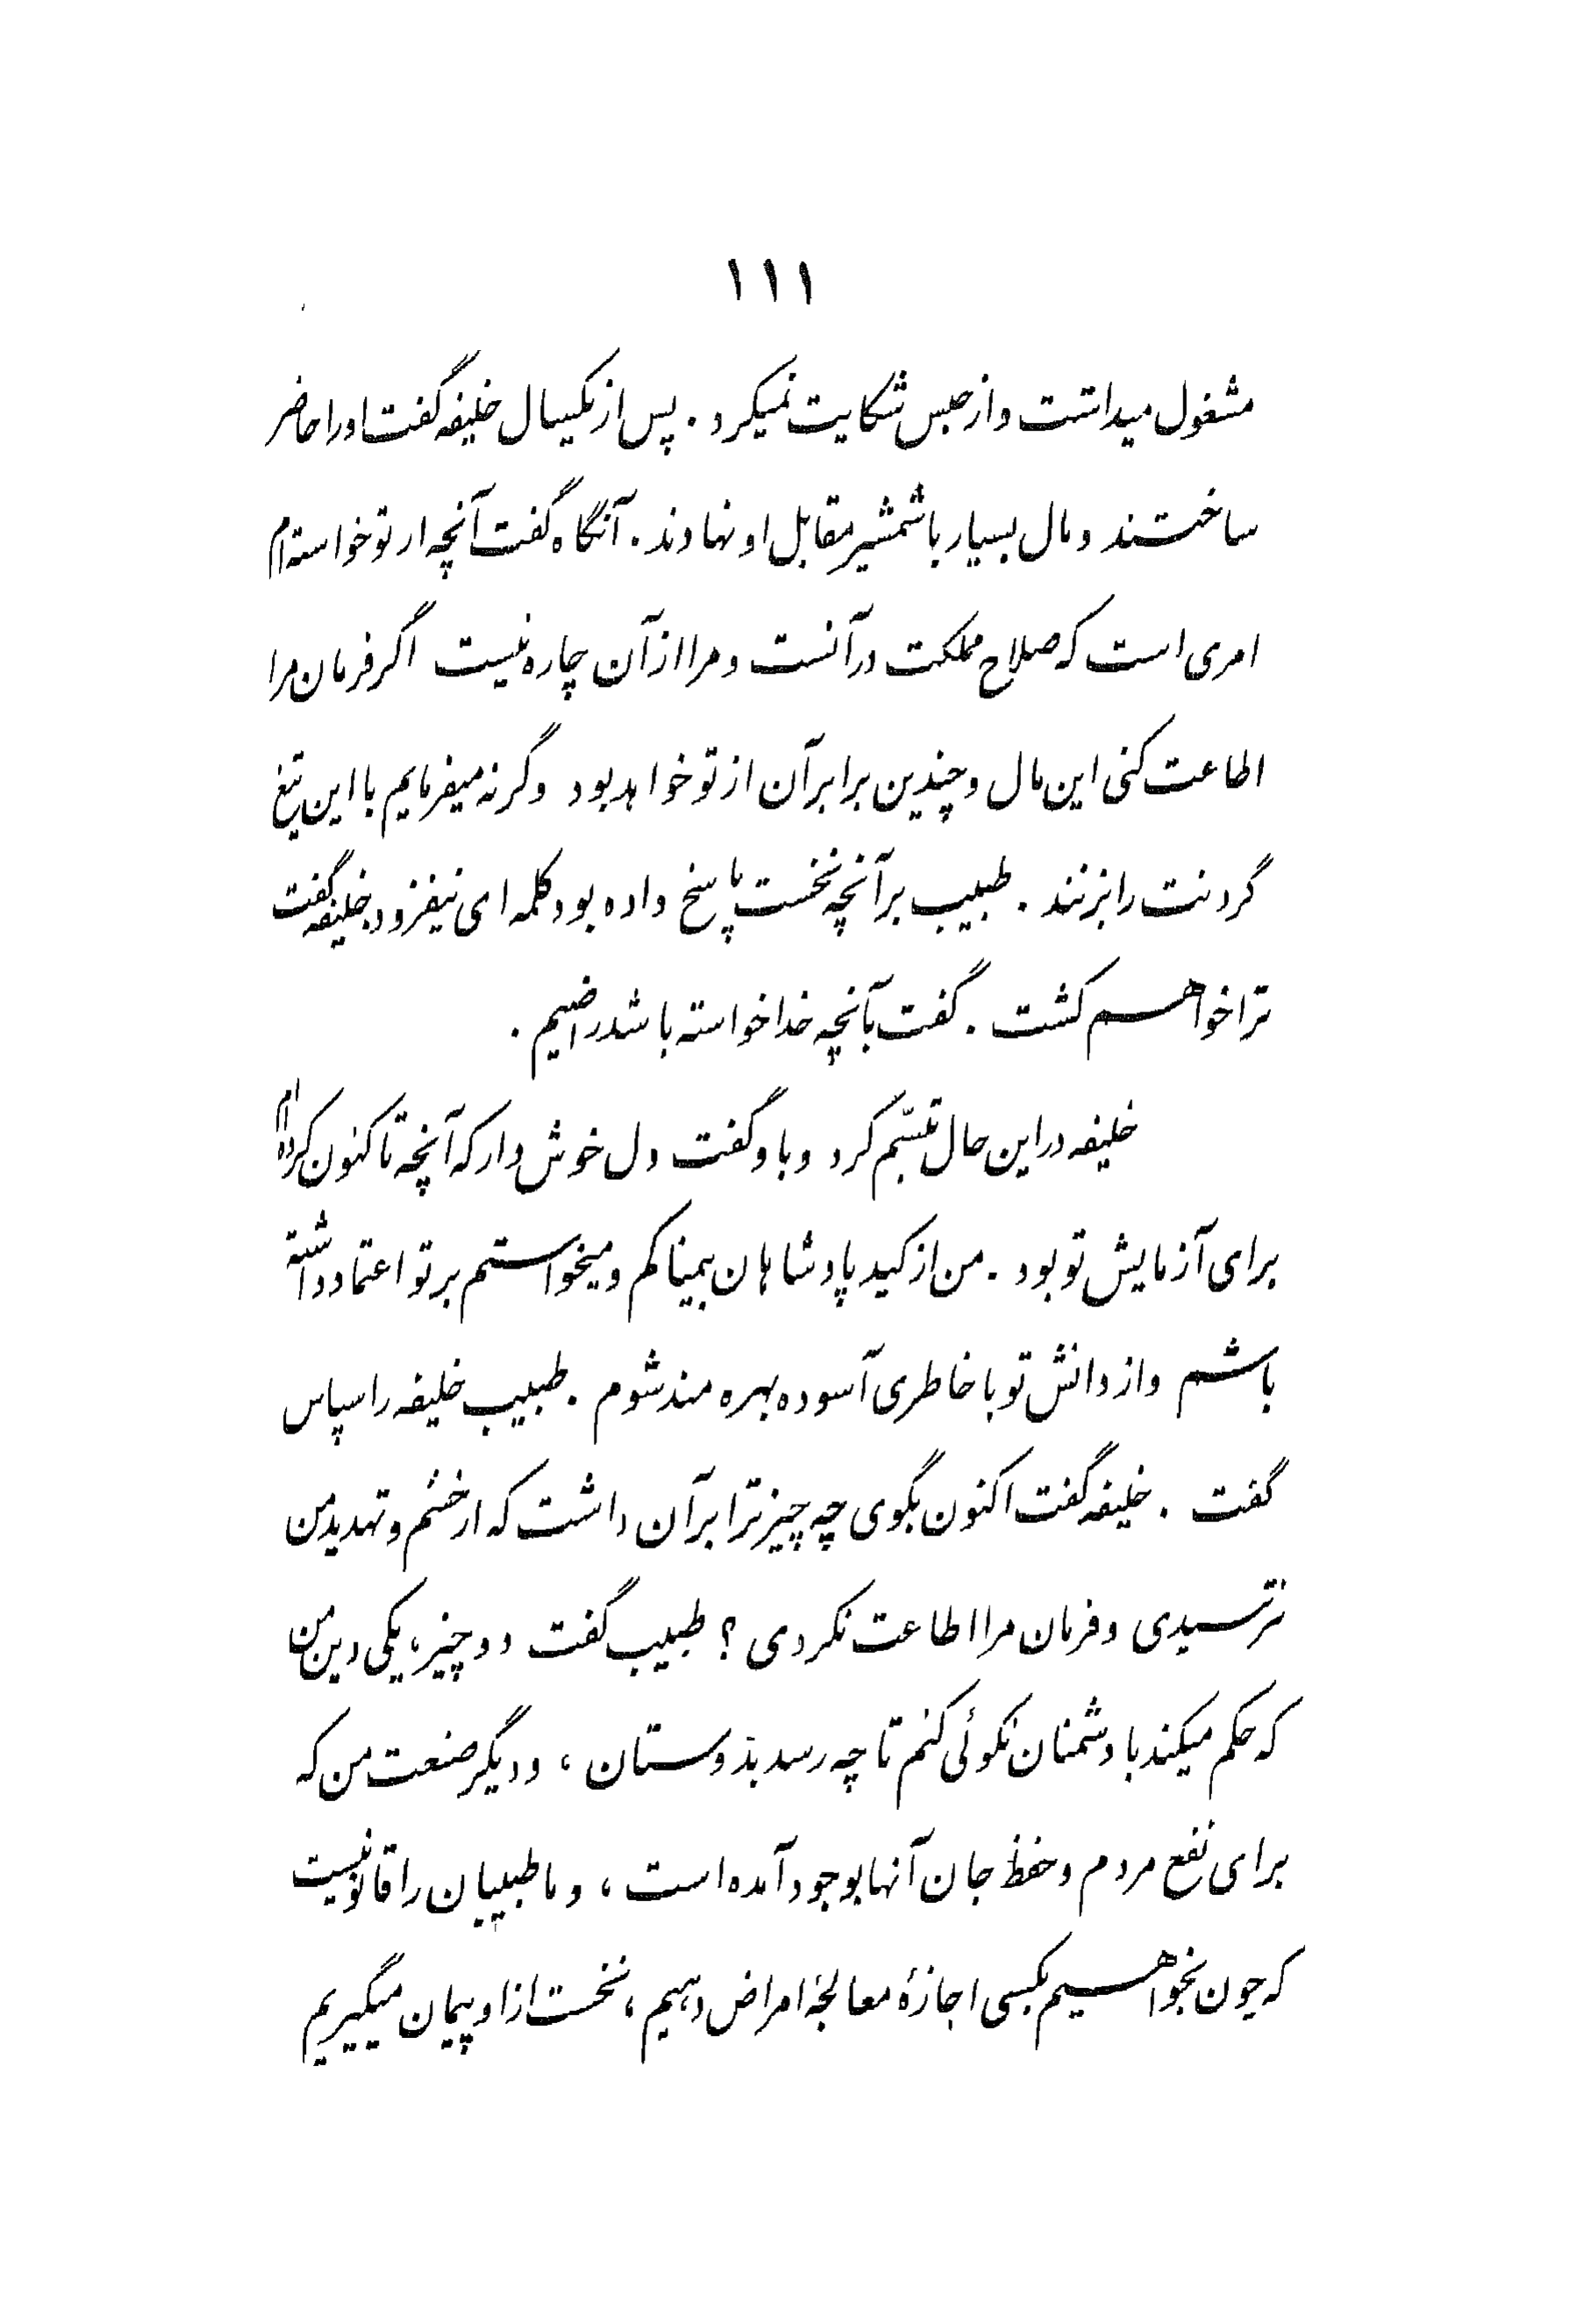 ۱۱۱
مشغول میداشت و از حبس شکایت نمیکرد . پس از یکسال خلیفه گفت او را حاضر
ساختند و مال بسیار با شمشیر مقابل او نهادند . آنگاه گفت آنچه از تو خواسته ام
امری است که صلاح مملکت در آنست و مرا از آن چاره نیست اگر فرمان مرا
اطاعت کنی این مال و چندین برابر آن از تو خواهد بود وگرنه میفرمایم با این تیغ
گردنت را بزنند . طبیب بر آنچه نخست پاسخ داده بود کلمه ای نیفزود . خلیفه گفت
ترا خواهم کشت . گفت بآنچه خدا خواسته باشد راضیم .
خلیفه در این حال تبسّم کرد و باو گفت دل خوش دار که آنچه تا کنون کرده ام
برای آزمایش تو بود . من از کید پادشاهان بیمناکم و میخواستم بر تو اعتماد داشته
باشم و از دانش تو با خاطری آسوده بهره مند شوم . طبیب خلیفه را سپاس
گفت . خلیفه گفت اکنون بگوی چه چیز ترا بر آن داشت که از خشم و تهدید من
نترسیدی و فرمان مرا اطاعت نکردی ؟ طبیب گفت دو چیز ، یکی دین من
که حکم میکند با دشمنان نکوئی کنم تا چه رسد بدوستان ، و دیگر صنعت من که
برای نفع مردم و حفظ جان آنها بوجود آمده است ، و ما طبیبان را قانونیست
که چون بخواهیم بکسی اجازهٔ معالجهٔ امراض دهیم ، نخست از او پیمان میگیریم